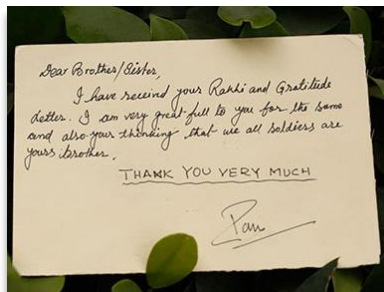 Dear Brother/Sister,
I have received your Rakhi and Gratitude
Letter. I am very great full to you for the same
and also your thinking that we all soldiers are
yours brother.
THANK YOU VERY MUCH